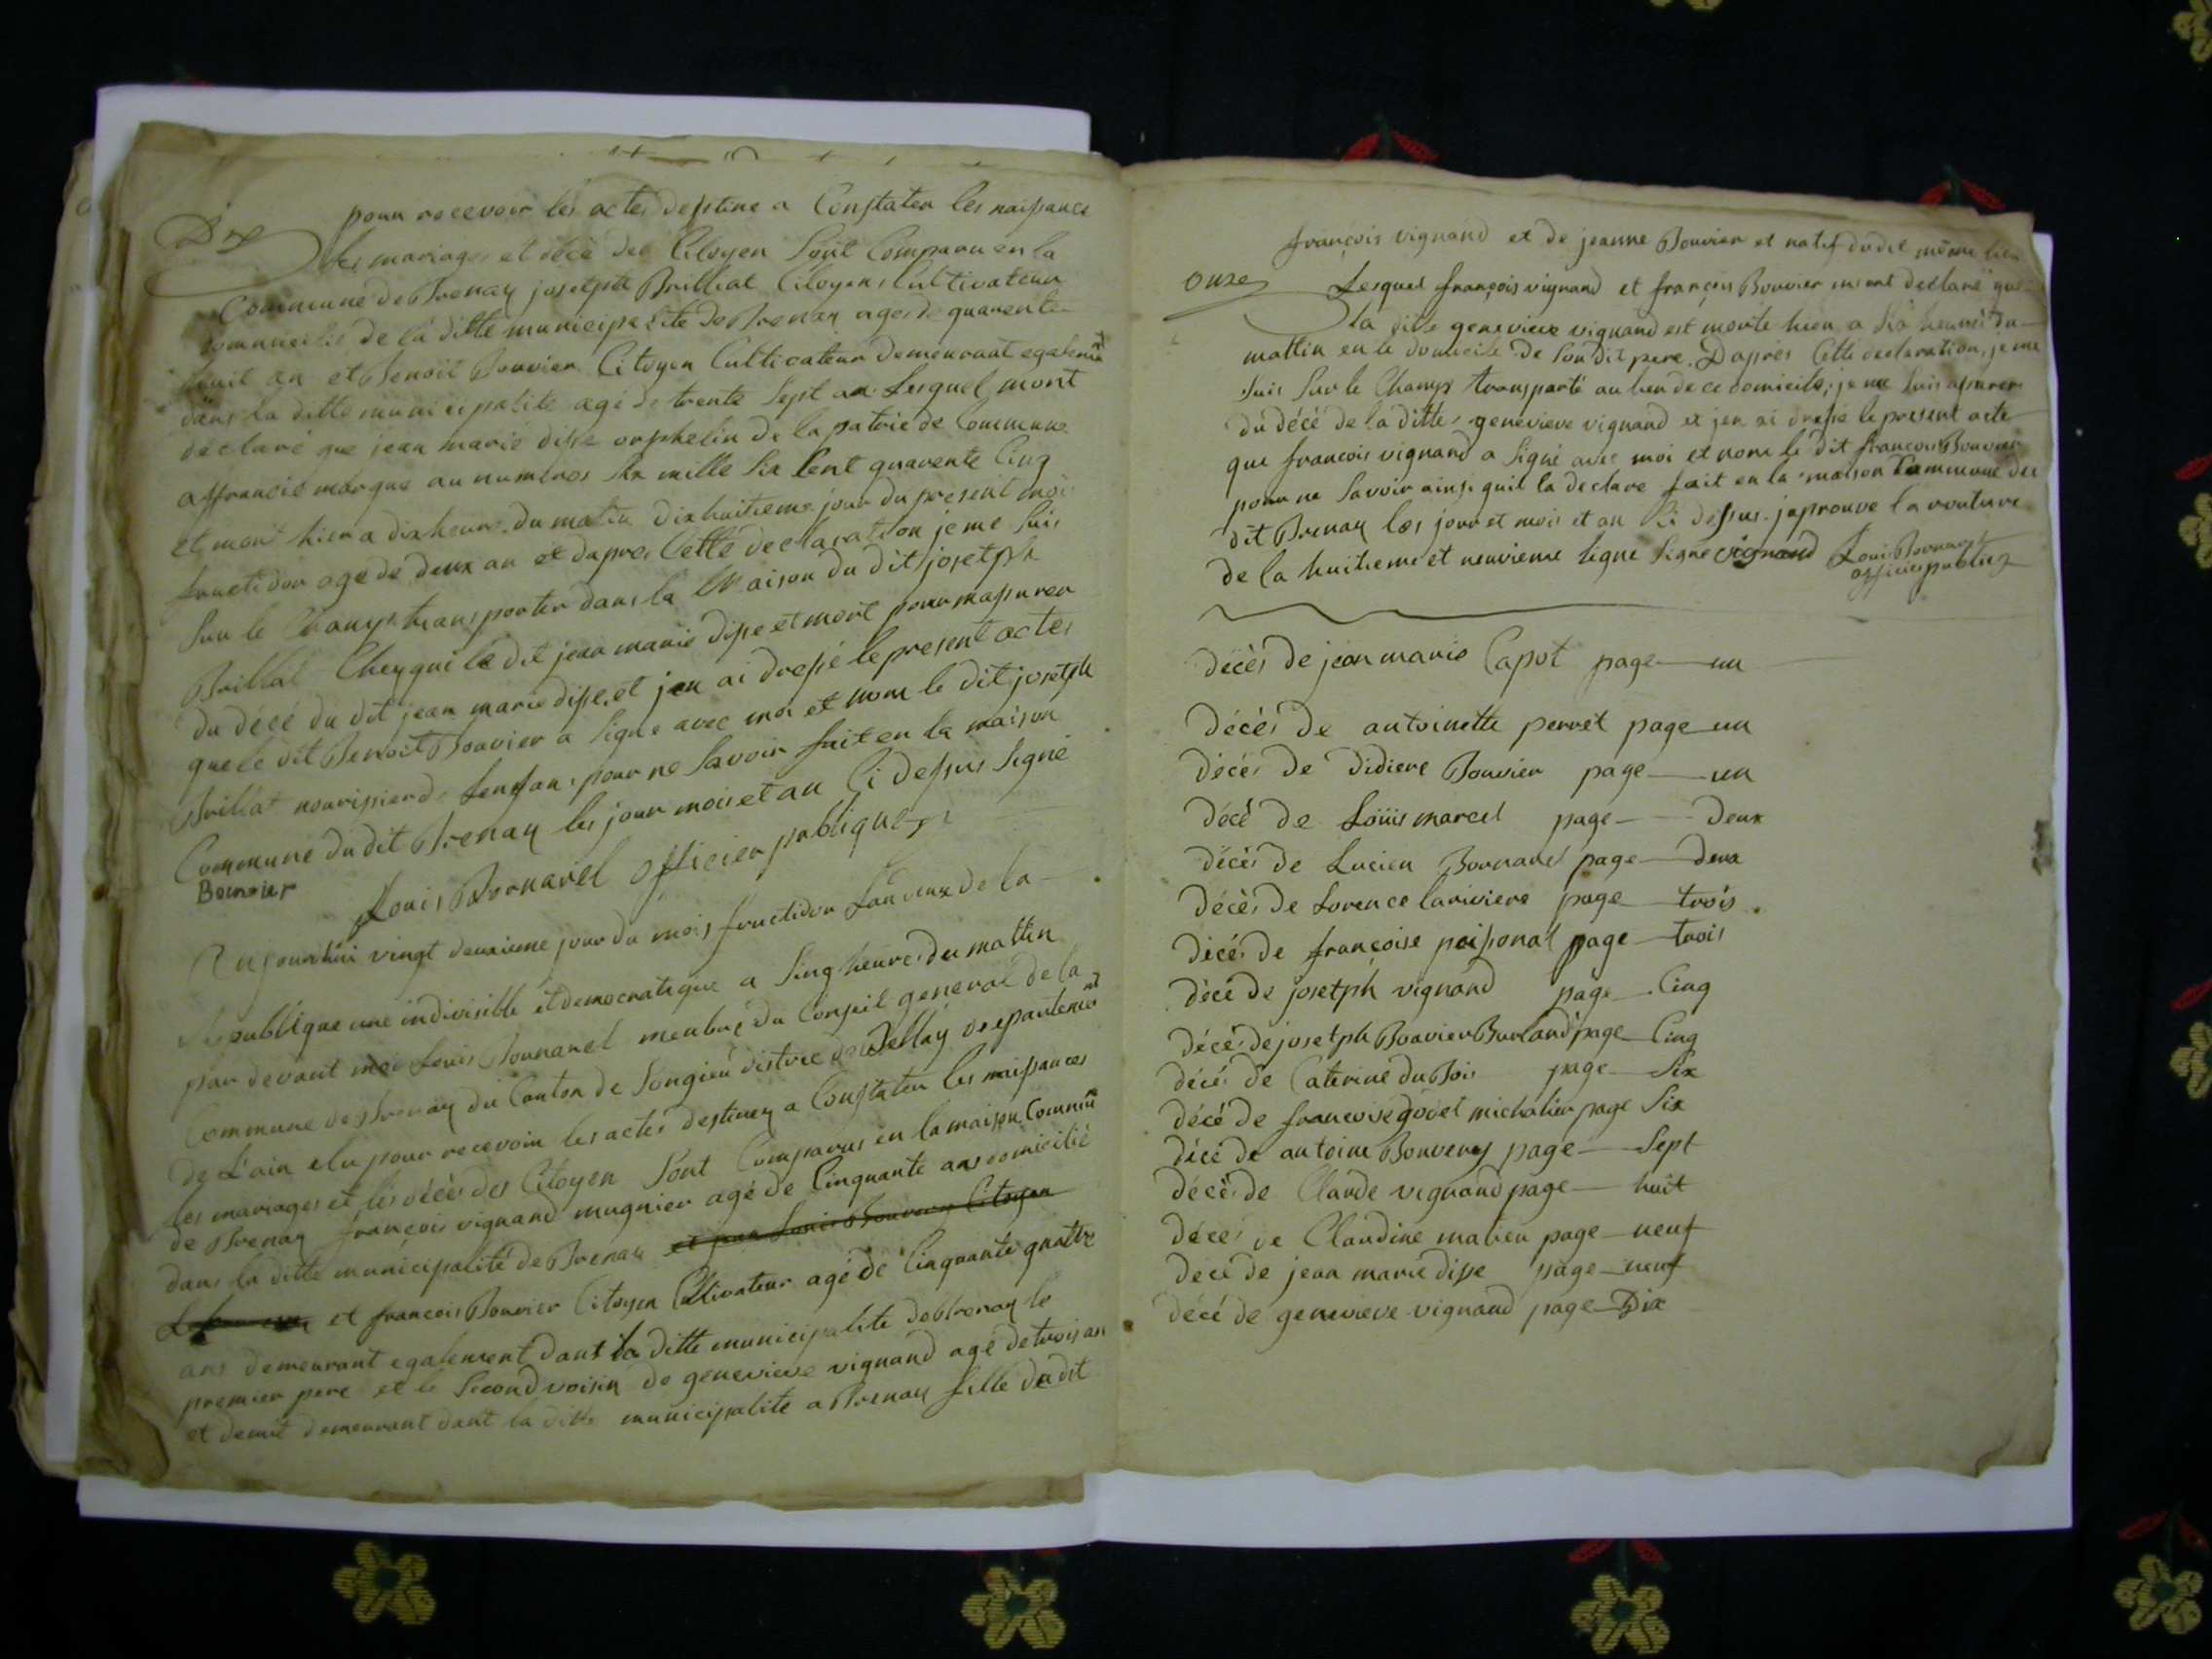 Dix
pour recevoir les actes destine a Constater les naissance
les mariages et décé des Citoyen Sont Comparu en la
Commune de Brenay josetph Brillat Citoyens Cultivateur
domiciliè de la ditte municipalité de Brenay agés de quarente
huit an et Benoit Bouvier Citoyen Cultivateur demeuraant egalemt
dans la ditte municipalité agé de trente Sept an Lesquel mont
déclaré que jean marie disse orphelin de la patrie de Commune
affrancie marque au numéros Six mille Six Cent quarente Cinq
et mort hier a dix heure du matin dixhuitieme jour du présent moi
fructidor age de deux an et dapres Cette declaration je me Suis
Sur le Champ transporter dans la Maison du dit josetph
Brillat Chey qui le dit jean marie disse et mort pour massurer
du décé du dit jean marie disse, et jen ai dressé le present actes
que le dit Benoit Bouvier a Signe avec moi et nom le dit josetph
Brillat nourissier de Lenfans pour ne Savoir fait en la maison
Commune du dit Brenay les jour mois et an Ci dessus Signé
Bouvier
Louis Bornarel officier publique
Aujourdhui vingt deuxieme jour du mois fructidor Lan deux de la
Republique une indivisible et democratique a Sinq heures du mattin
par devant moi Louis Bournarel menbre du Conseil general de la
Commune de Brenay du Canton de Songieu distric de Bellay depantement
de L'ain elu pour recevoir les actes destiney a Constater les naissances
les mariages et les décès des Citoyen Sont Comparus en la maison Commune
de Brenay françois vignand mugnier agé de Cinquante ans domicilié
dans la ditte municipalité de Brenay et jean Louis Bouvery Citoyen
et francois Bouvier Citoyen Cultivateur agé de Cinquante quattre
ans demeurant egalement dans la ditte municipalité de brenay le
premier pere et le Second voisin de genevieve vignand agé de trois an
et demit demeurant dant la ditte municipalite a Brenay fille dudit
françois vignand et de jeanne Bouvier et natif dudit même lieu
onze
Lesquel françois vignand et françois Bouvier mont declaré que
la ditte genevieve vignand est morte hier a Six heures du
mattin en le domicile de Son dit pere. Dapres Cette declaration, je me
Suis Sur le Champs transporté au lieu de ce domicile, je me Suis assurer
du décé de la ditte genevieve vignand et jen ai dressé le present acte
que francois vignand a Signé avec moi et nom le dit francois Bouvier
pour ne Savoir ainsi quil la declare fait en la maison Commune du
dit Brenay les jour et mois et an Ci dessus. japrouve la routure
de la huitieme et neuvieme ligne Signe vignand Louis Bornarel
officier publiq
décès de jean marie Capot page un
décès de antoinette perret page un
décés de didiere Bouvier page un
décé de Loüis marcel page Deux
décès de Lucien Bornarel page deux
décès de Lorence lariviere page trois
décés de françoise poissonat page trois
décé de josetph vignand page Cinq
décé de josetph Bouvier Burland page Cinq
décés de Caterine du Bois page Six
décé de francoise godet michalier page Six
décé de antoine Bouvery page Sept
décès de Claude vignand page huit
déces de Claudine mabeu page neuf
decé de jean marie disse page neuf
décé de genevieve vignand page Dix